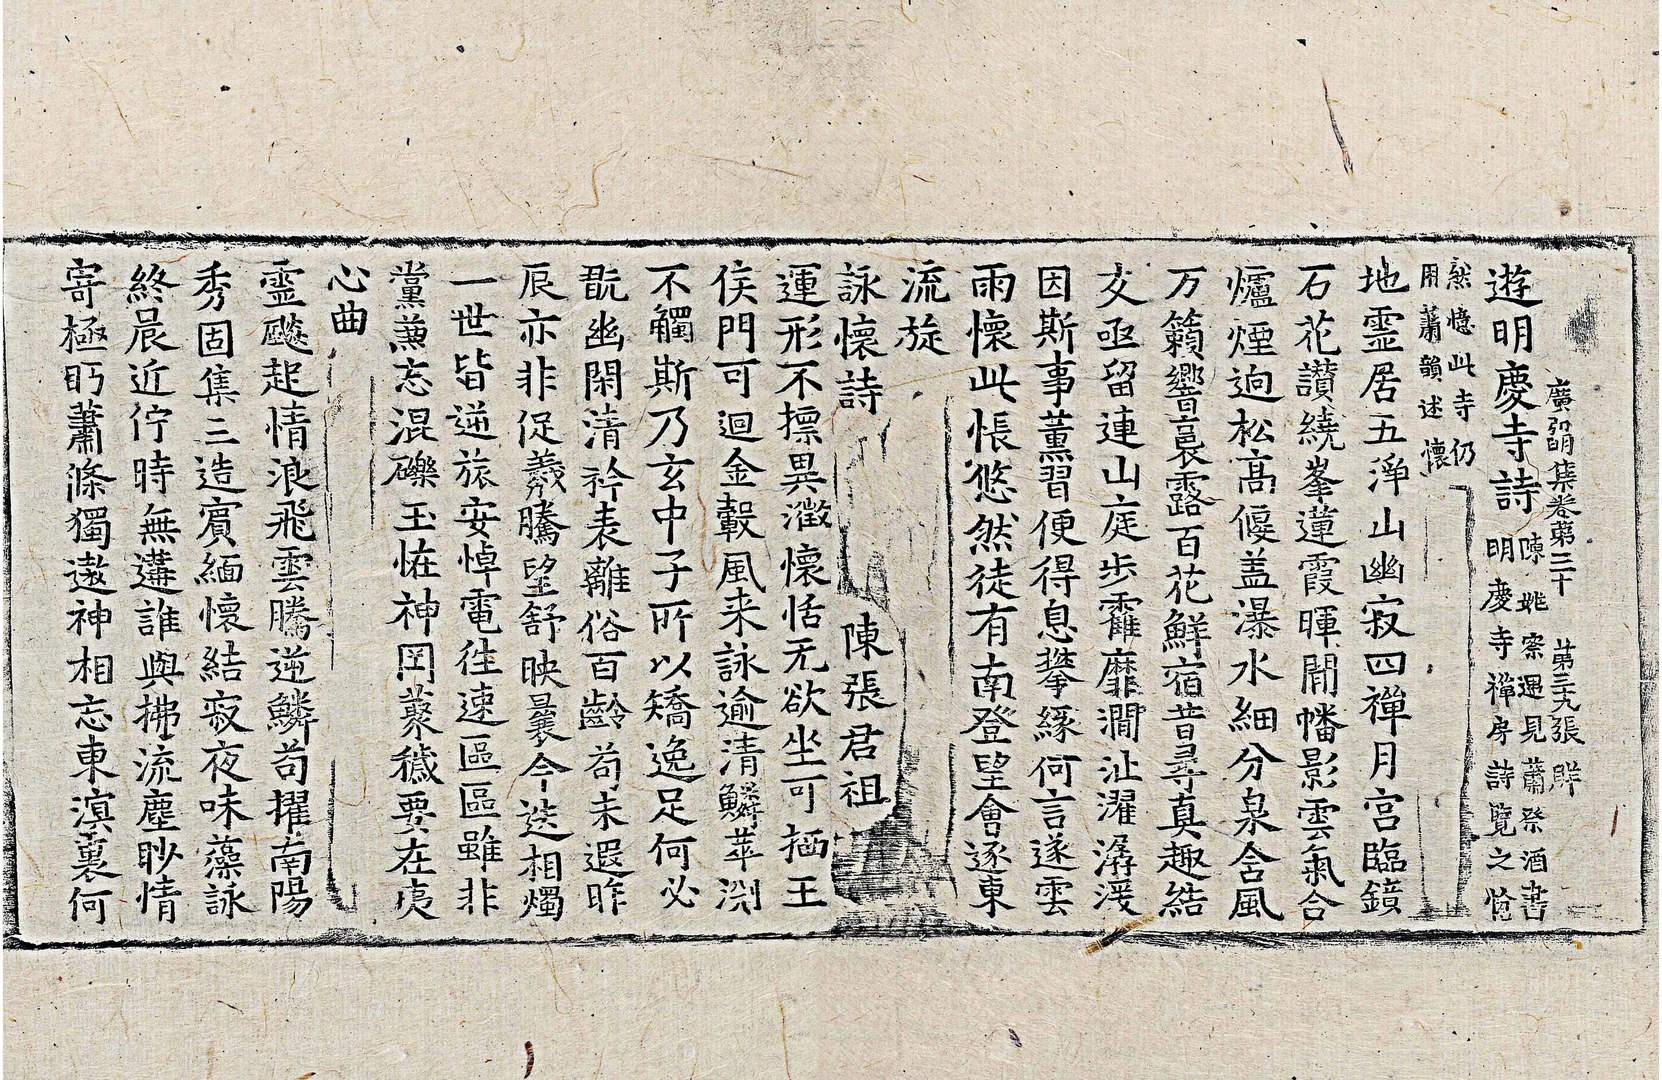 廣弘明集卷第三十　第三九張　牂
遊明慶寺詩　陳姚察遇見蕭祭酒書
明慶寺禪房詩覽之愴
然憶此寺仍
用蕭韻述懷
地靈居五淨山幽寂四禪月宮臨鏡
石花讚繞峯蓮霞暉間幡影雲氣合
爐煙迥松高偃盖瀑水細分泉含風
万籟響裛露百花鮮宿昔尋真趣結
友亟留連山庭步霍靡澗沚濯潺湲
因斯事薰習便得息攀緣何言遂雲
雨懷此悵悠然徒有南登望會逐東
流旋
詠懷詩　陳張君祖
運形不摽異澂懷恬无欲坐可栖王
侯門可迴金轂風来詠逾清鱗萃渊
不觸斯乃玄中子所以矯逸足何必
翫幽閑清衿表離俗百齡苟未遐昨
辰亦非促羲騰望舒映曩今迭相燭
一世皆逆旅安悼電徃速區區雖非
黨兼忘混礫玉恠神罔叢穢要在夷
心曲
靈飈起情浪飛雲騰逆鱗苟擢南陽
秀固集三造賓緬懷結寂夜味藻詠
終晨近佇時無遘誰與拂流塵眇情
寄極眄蕭條獨遨神相忘東溟裏何